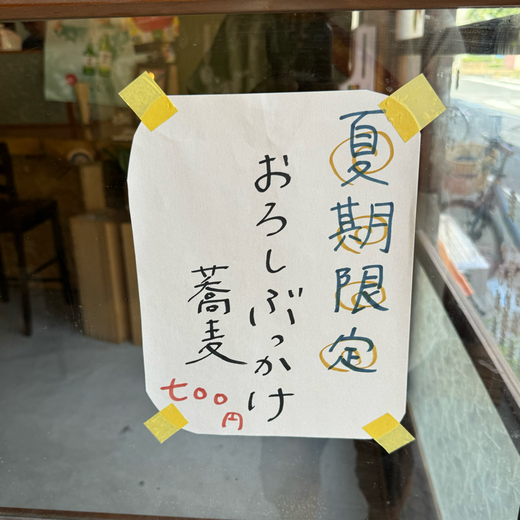 夏期限定
おろしぶっかけ
蕎麦
七〇〇円